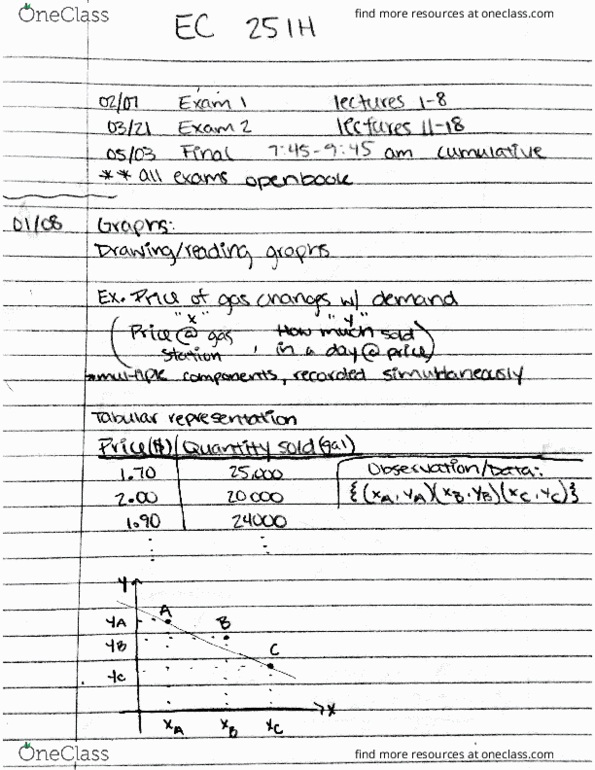 OneClass
find more resources at oneclass.com
EC 251H
02/07 Exam 1 lectures 1-8
03/21 Exam 2 lectures 11-18
05/03 Final 7:45-9:45 am cumulative
** all exams openbook
01/08 Graphs:
Drawing/reading graphs
Ex. Price of gas changes w/ demand
"x" "y"
(Price @ gas station, How much sold in a day @ price)
multiple components, recorded simultaneously
Tabular representation
Price($) Quantity sold(gal)
1.70 25,000
Observation/Data:
2.00 20000
{(xA, yA)(xB, yB)(xC, yC)}
1.90 24000
Y
A
yA
B
yB
C
yC
x
xA xB xC
OneClass
find more resources at oneclass.com